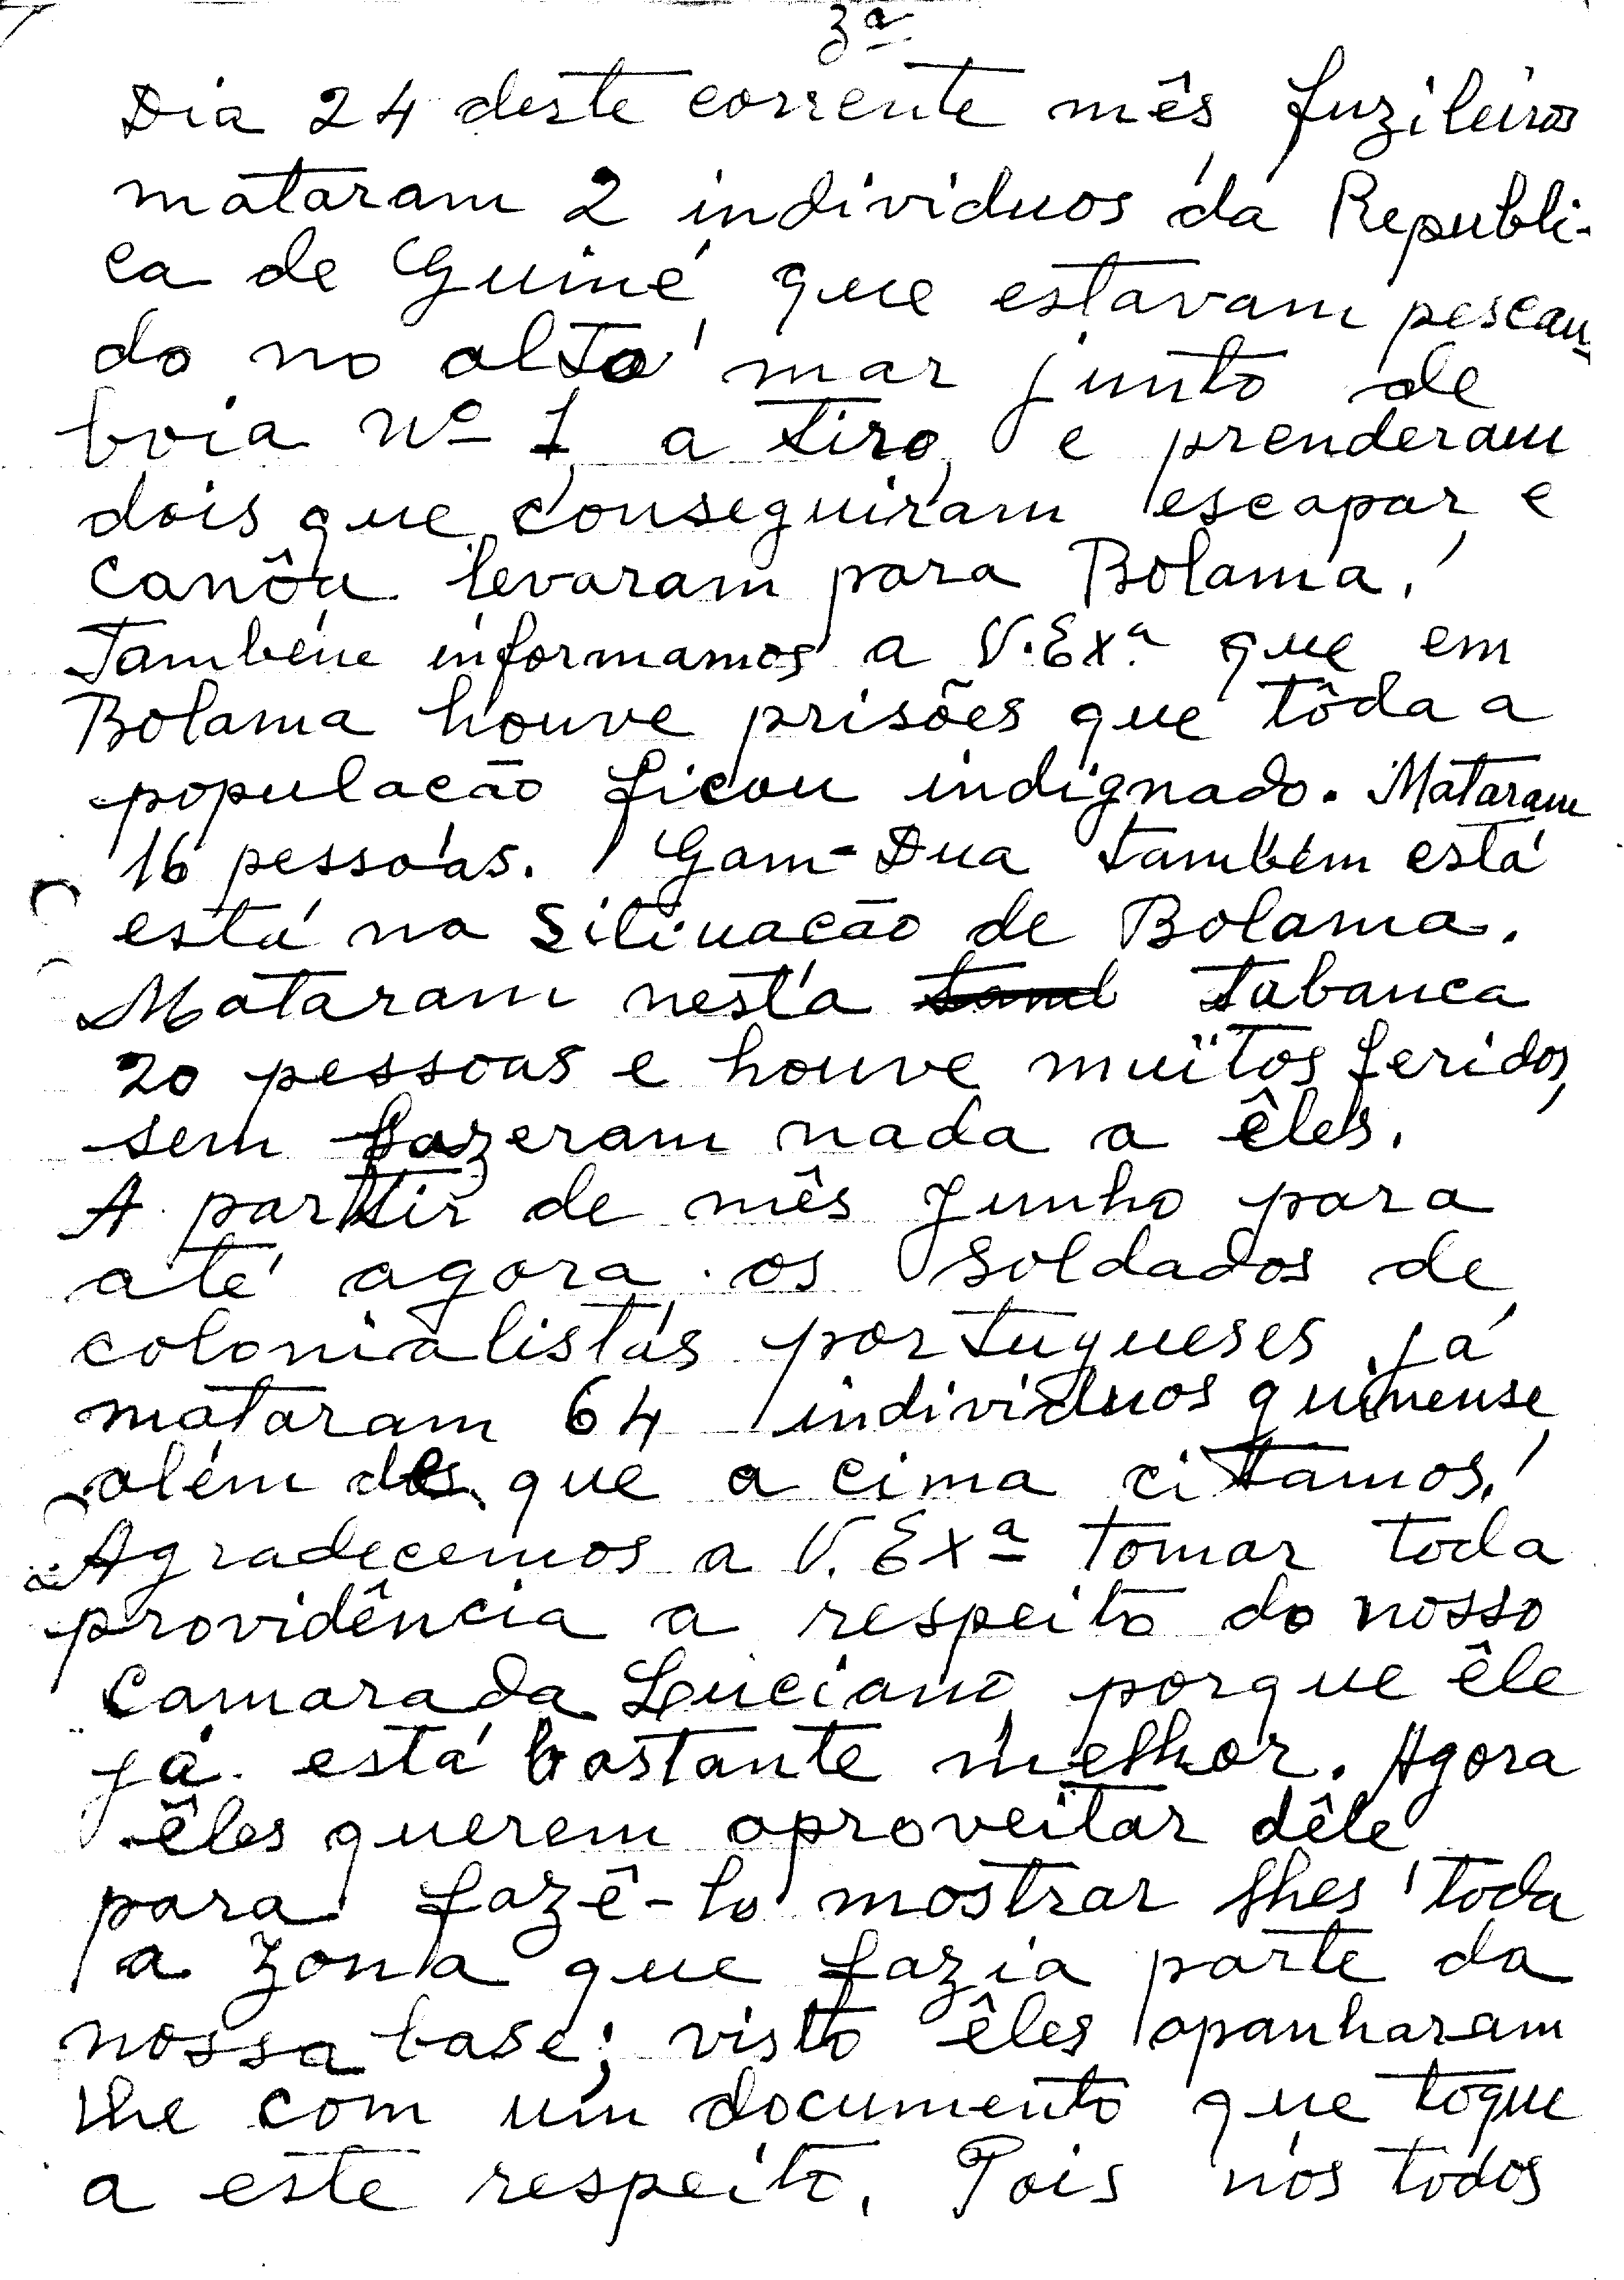 3ª
Dia 24 deste corrente mês, fuzileiros
mataram 2 individuos da Republi-
ca de Guiné, que estavam pescan-
do no alto mar junto de
boia nº 1, a tiro, e prenderam
dois que conseguiram escapar, e
canôa levaram para Bolama.
Também informamos a V.Exª. que em
Bolama houve prisões que tôda a
populacão ficou indignado. Mataram
16 pessoas. Gam-Dua também está
está na Sitiuacão de Bolama.
Mataram nesta tabanca
20 pessoas e houve muitos feridos,
sem fazeram nada a êles.
A partir de mês Junho para
até agora os soldados de
colonialistas portugueses já
mataram 64 individuos guinense,
além des que a cima citamos.
Agradecemos a V. Exª tomar toda
providência a respeito do nosso
camarada Luciano, porque êle
já está bastante melhor. Agora
êles querem aproveitar dêle
para fazê-lo mostrar lhes toda
a zona que fazia parte da
nossa base; visto êles apanharam
lhe com um documento que toque
a este respeito. Pois nós todos